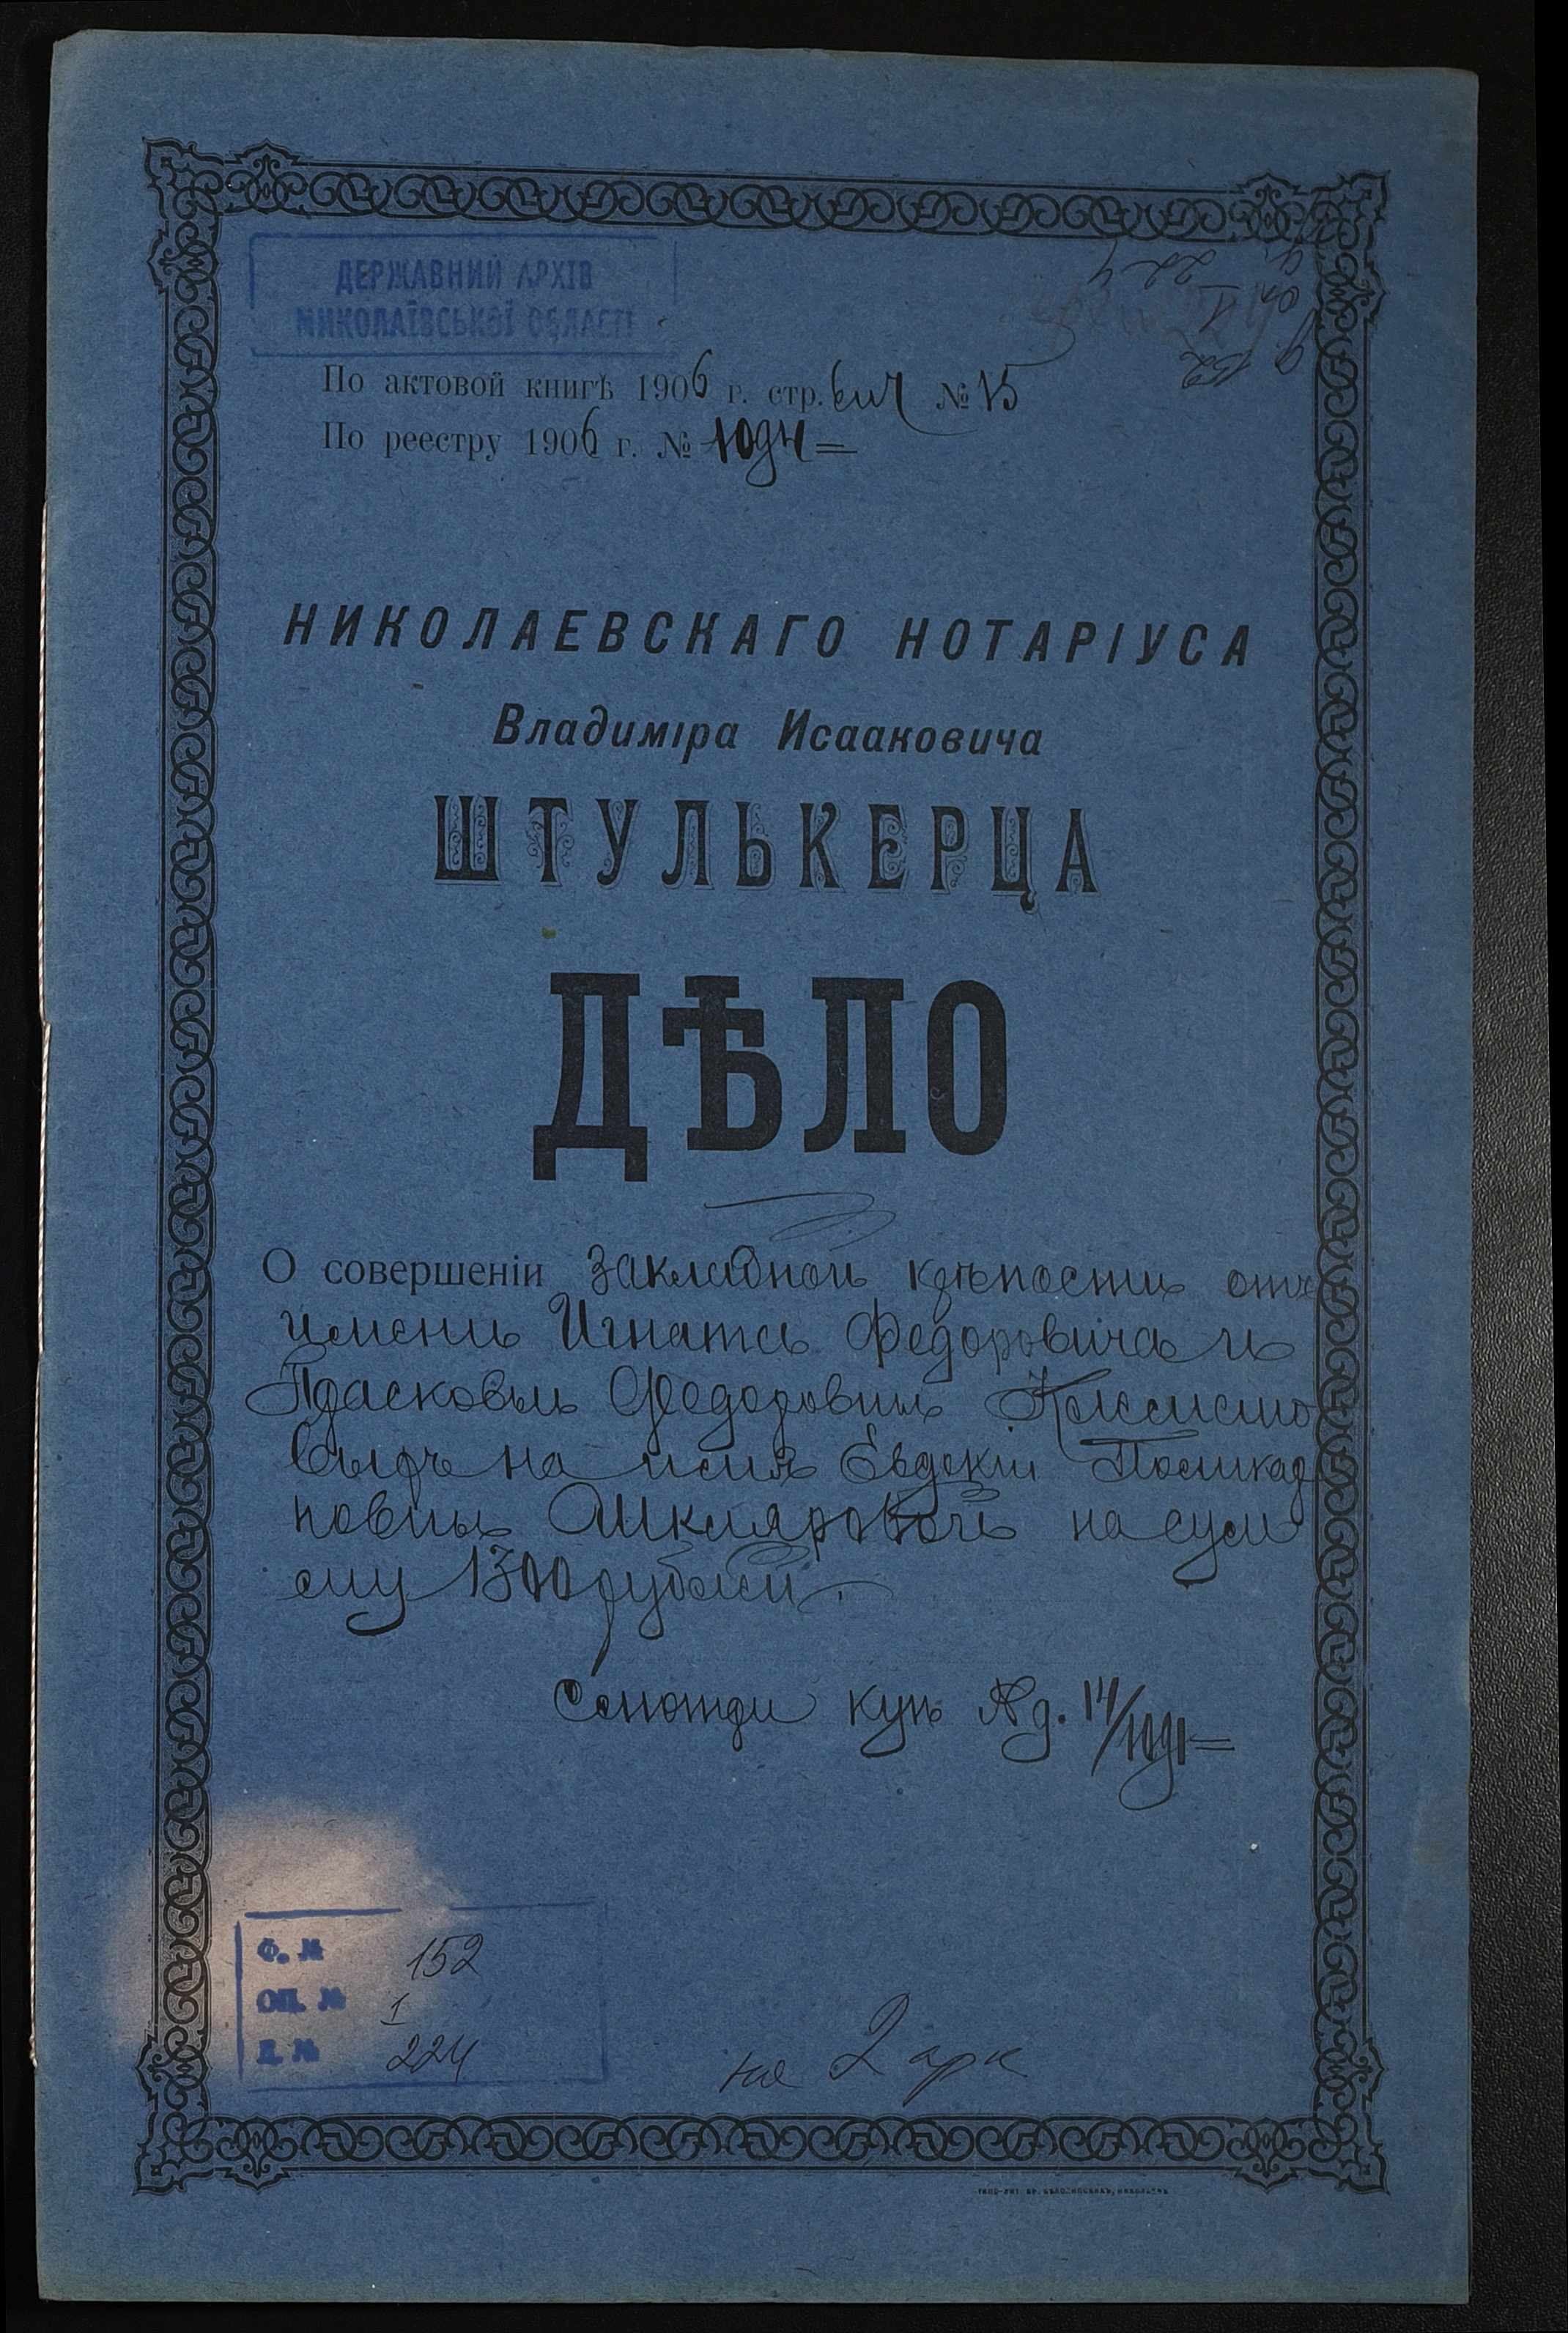 ДЕРЖАВНИЙ АРХІВ
МИКОЛАЇВСЬКОЇ ОБЛАСТІ
ф. 152
оп 1
д. 224
По актовой книгѣ 1906 г. стр. № 15
По реестру 1906 г. №
НИКОЛАЕВСКАГО НОТАРІУСА
Владиміра Исааковича
ШТУЛЬКЕРЦА
ДѢЛО
О совершеніи закладной крѣпости отъ
имени Игната Федоровича и
Прасковьи Федоровны
выхъ на имя Евдокіи
повны Шкляровой на сум
му 1300 рублей.
Смотри куп.
Ф. № 152
ОП. № 1
Д. № 224
на 2 арк